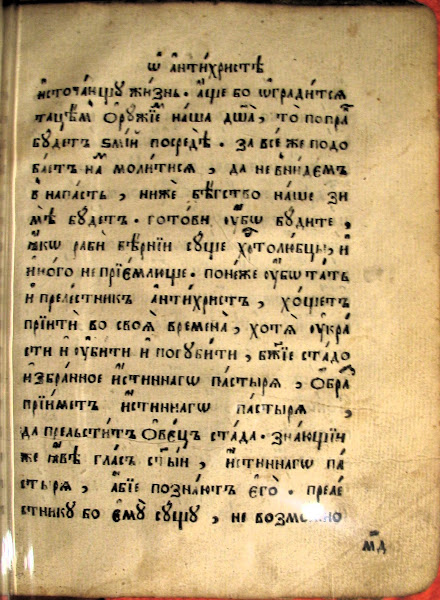 Ѡ҆ а҆нти́христѣ
и҆сточа́ющꙋ жи́знь. а҆́ще бо ѡ҆гради́тсѧ
таце́мъ Ѻ҆рꙋ́жїемъ на́ша дш҃а̀, то попра́
бꙋ́детъ ѕмі́й посредѣ̀. за все́ же подо
ба́етъ на́мъ моли́тисѧ, да не вни́демъ
в напа́сть, нижѐ бѣ́гство на́ше зи
мѣ̀ бꙋ́детъ. гото́ви ᲂу҆́бѡ бꙋ́дите,
ꙗ҆́кѡ рабѝ вѣ́рнїи сꙋ́ще хрⷭ҇толю́бцы, и҆
и҆но́го не прїе́млюще. поне́же ᲂу҆́бѡ та́ть
и҆ преле́стникъ а҆нти́христъ, хо́щетъ
прїитѝ во своѧ̀ времена̀, хотѧ̀ ᲂу҆кра́
сти и҆ ᲂу҆би́ти и҆ погꙋби́ти, бж҃їе ста́до
и҆збра́нное и҆́стиннагѡ па́стырѧ, Ѻ҆́бра
прїи́метъ и҆́стиннагѡ па́стырѧ,
да прельсти́тъ Ѻ҆ве́цъ ста́да. зна́ющїи
же ꙗ҆́вѣ гла́съ ст҃ы́и, и҆́стиннагѡ па́
стырѧ, а҆́бїе позна́ютъ є҆го̀. преле́
стникꙋ бо є҆мꙋ̀ сꙋ́щꙋ, не возмо́жно
м҃д